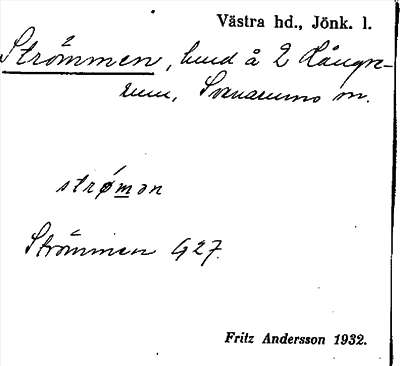 Västra hd., Jönk. l.
Strömmen, lund å 2 Långe-
rum, Svanarums m.
strǿmən
Strömmen G 27.
Fritz Andersson 1932.